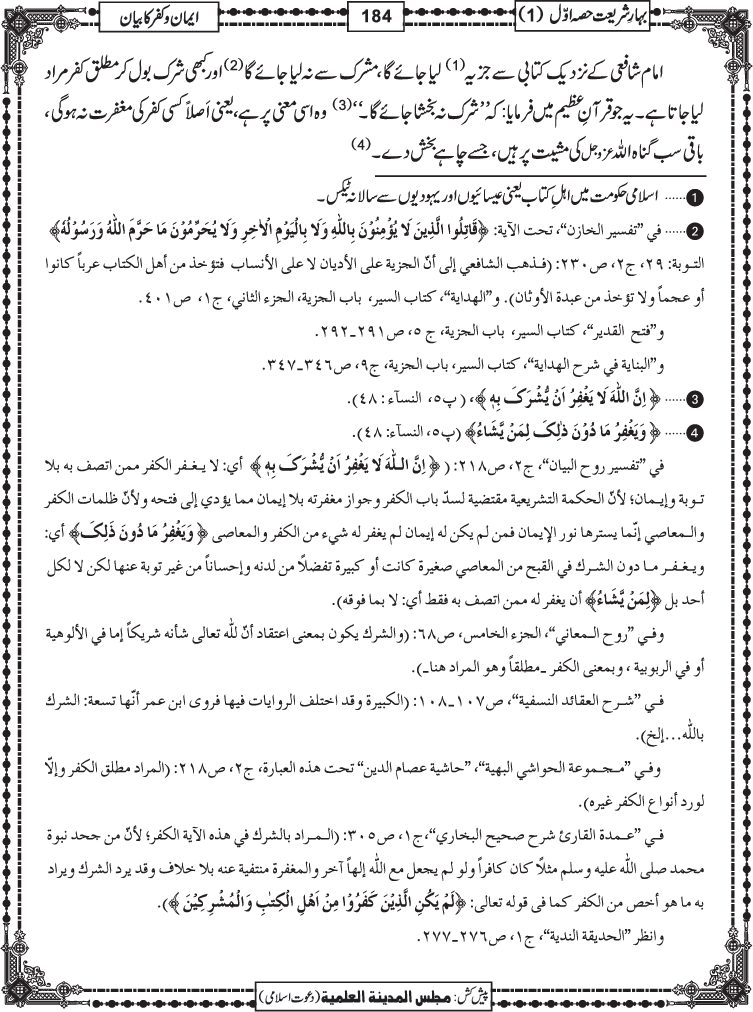 بہارِ شریعت حصہ اوّل (1)
184
ایمان و کفر کا بیان
امام شافعی کے نزدیک کتابی سے جزیہ (1) لیا جائے گا، مشرک سے نہ لیا جائے گا (2) اور کبھی شرک بول کر مطلق کفر مراد
لیا جاتا ہے۔ یہ جو قرآنِ عظیم میں فرمایا: کہ ’’شرک نہ بخشا جائے گا۔‘‘ (3) وہ اسی معنی پر ہے، یعنی اَصلاً کسی کفر کی مغفرت نہ ہوگی،
باقی سب گناہ اللہ عزوجل کی مشیت پر ہیں، جسے چاہے بخش دے۔ (4)
1 ...... اسلامی حکومت میں اہلِ کتاب یعنی عیسائیوں اور یہودیوں سے سالانہ ٹیکس۔
2 ...... في ”تفسير الخازن“، تحت الآية: ﴿قَاتِلُوا الَّذِيْنَ لَا يُؤْمِنُوْنَ بِاللّٰهِ وَلَا بِالْيَوْمِ الْاٰخِرِ وَلَا يُحَرِّمُوْنَ مَا حَرَّمَ اللّٰهُ وَرَسُوْلُهٗ﴾
التوبة: ٢٩، ج٢، ص٢٣٠: (فـذهب الشافعي إلى أنّ الجزية على الأديان لا على الأنساب فتؤخذ من أهل الكتاب عرباً كانوا
أو عجماً ولا تؤخذ من عبدة الأوثان). و”الهداية“، كتاب السير، باب الجزية، الجزء الثاني، ج١، ص٤٠١.
و”فتح القدير“، كتاب السير، باب الجزية، ج ٥، ص ٢٩١ـ٢٩٢.
و”البناية في شرح الهداية“، كتاب السير، باب الجزية، ج٩، ص٣٤٦ـ٣٤٧.
3 ...... ﴿اِنَّ اللّٰهَ لَا يَغْفِرُ اَنْ يُّشْرَكَ بِهٖ﴾، (پ٥، النسآء: ٤٨).
4 ...... ﴿وَيَغْفِرُ مَا دُوْنَ ذٰلِكَ لِمَنْ يَّشَاءُ﴾ (پ٥، النسآء: ٤٨).
في ”تفسير روح البيان“، ج٢، ص٢١٨: (﴿اِنَّ اللّٰهَ لَا يَغْفِرُ اَنْ يُّشْرَكَ بِهٖ﴾ أي: لا يـغـفر الكفر ممن اتصف به بلا
تـوبة وإيـمـان؛ لأنّ الحكمة التشريعية مقتضية لسدّ باب الكفر وجواز مغفرته بلا إيمان مما يؤدي إلى فتحه ولأنّ ظلمات الكفر
والـمعاصي إنّما يسترها نور الإيمان فمن لم يكن له إيمان لم يغفر له شيء من الكفر والمعاصي ﴿وَيَغْفِرُ مَا دُوْنَ ذٰلِكَ﴾ أي:
ويـغـفـر مـا دون الشرك في القبح من المعاصي صغيرة كانت أو كبيرة تفضلاً من لدنه وإحساناً من غير توبة عنها لكن لا لكل
أحد بل ﴿لِمَنْ يَّشَاءُ﴾ أن يغفر له ممن اتصف به فقط أي: لا بما فوقه).
وفـي ”روح الـمعاني“، الجزء الخامس، ص٦٨: (والشرك يكون بمعنى اعتقاد أنّ للّٰه تعالى شأنه شريكاً إما في الألوهية
أو في الربوبية، وبمعنى الكفر ـمطلقاً وهو المراد هناـ).
فـي ”شـرح العقائد النسفية“، ص١٠٧ـ١٠٨: (الكبيرة وقد اختلف الروايات فيها فروى ابن عمر أنّها تسعة: الشرك
باللّٰه...إلخ).
وفـي ”مـجـمـوعة الحواشي البهية“، ”حاشية عصام الدين“ تحت هذه العبارة، ج٢، ص٢١٨: (المراد مطلق الكفر وإلّا
لورد أنواع الكفر غيره).
فـي ”عـمدة القارئ شرح صحيح البخاري“،ج١، ص٣٠٥: (الـمـراد بالشرك في هذه الآية الكفر؛ لأنّ من جحد نبوة
محمد صلى اللّٰه عليه وسلم مثلًا كان كافراً ولو لم يجعل مع اللّٰه إلهاً آخر والمغفرة منتفية عنه بلا خلاف وقد يرد الشرك ويراد
به ما هو أخص من الكفر كما فى قوله تعالى: ﴿لَمْ يَكُنِ الَّذِيْنَ كَفَرُوْا مِنْ اَهْلِ الْكِتٰبِ وَالْمُشْرِكِيْنَ﴾).
وانظر ”الحديقة الندية“، ج١، ص٢٧٦ـ٢٧٧.
پیش کش: مجلس المدينة العلمية (دعوت اسلامی)